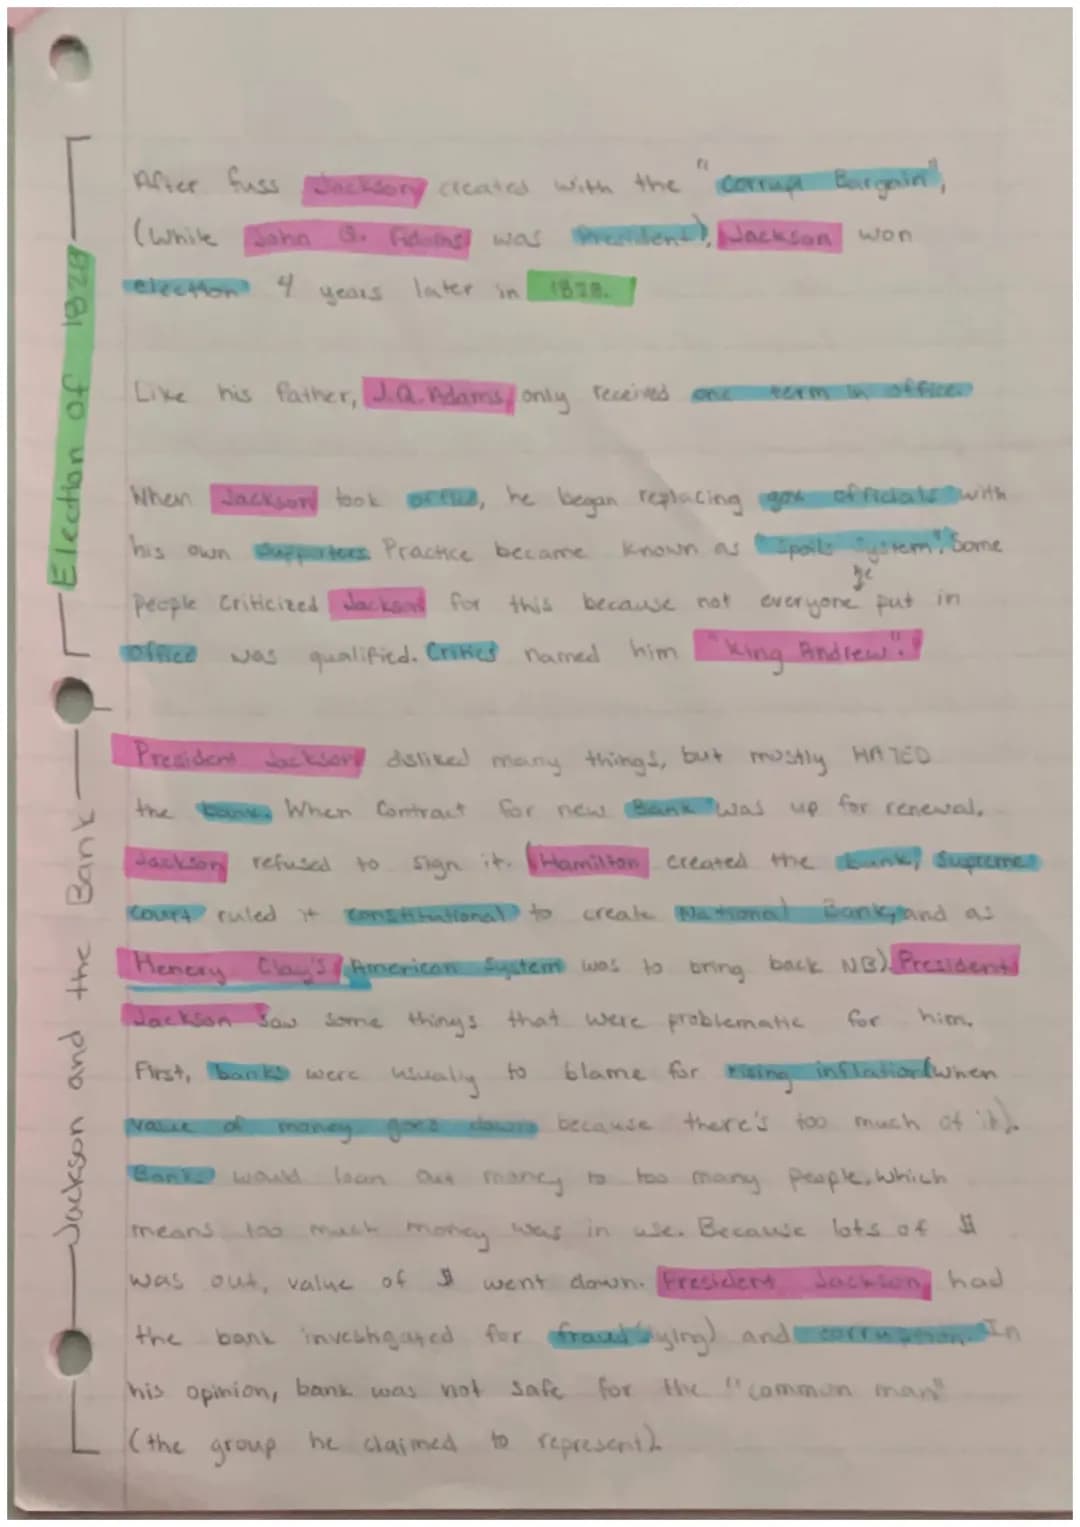 Election of 1828
After fuss Jackson created with the "Corrupt Bargain",
(While John Q. Adams was President), Jackson won
election 4 years later in 1828.
Like his father, J.Q. Adams, only received one term in office.
When Jackson took office, he began replacing gov. officials with
his own supporters. Practice became known as "Spoils System". Some
people criticized Jackson for this because not everyone he put in
office was qualified. Critics named him "King Andrew".
Jackson and the Bank
President Jackson disliked many things, but mostly HATED
the bank. When Contract for new Bank was up for renewal,
Jackson refused to sign it. (Hamilton created the bank, Supreme
Court ruled it constitutional to create National Bank, and as
Henery Clay's American System was to bring back NB). President
Jackson saw some things that were problematic for him.
First, banks were usually to blame for rising inflation (when
value of money goes down because there's too much of it).
Banks would loan out money to too many people, which
means too much money was in use. Because lots of $
was out, value of $ went down. President Jackson had
the bank investigated for fraud (lying) and corruption. In
his opinion, bank was not safe for the "common man"
(the group he claimed to represent).